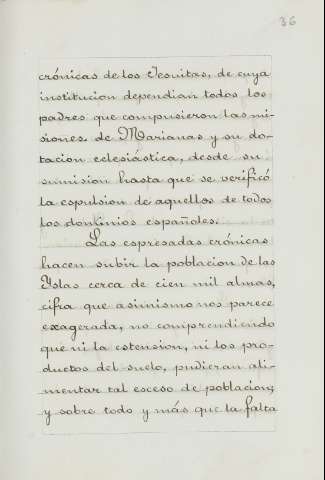 36
crónicas de los Jesuitas, de cuya
institucion dependian todos los
padres que compusieron las mi-
siones de Marianas y su do-
tacion eclesiástica, desde su
sumision hasta que se verificó
la espulsion de aquellos de todos
los dominios españoles.
Las espresadas crónicas
hacen subir la poblacion de las
Yslas cerca de cien mil almas,
cifra que asimismo nos parece
exagerada, no comprendiendo
que ni la estension, ni los pro-
ductos del suelo, pudieran ali-
mentar tal esceso de poblacion;
y sobre todo y más que la falta